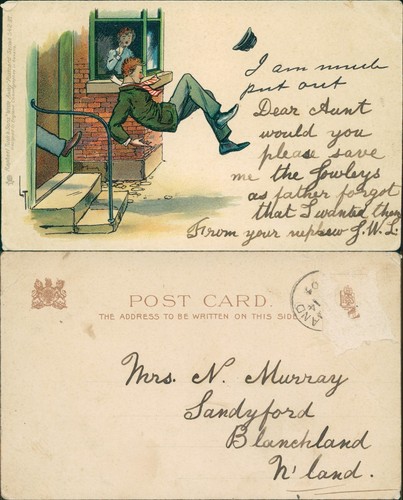 I am much
put out
Dear Aunt
would you
please save
me the Fowleys
as father forgot
that I wanted them
From your nephew J. W. L.
POST CARD.
THE ADDRESS TO BE WRITTEN ON THIS SIDE
Mrs. N. Murray
Sandyford
Blanchland
N'land.